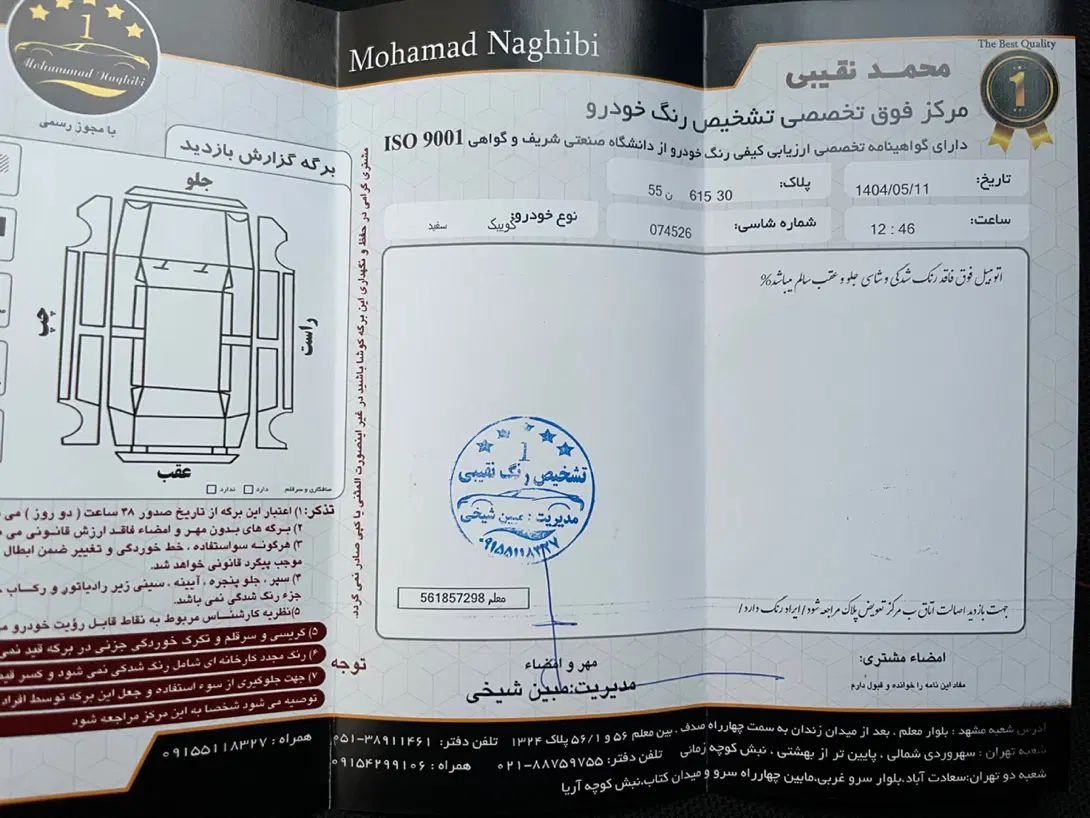 1
Mohammad Naghibi
با مجوز رسمی
Mohamad Naghibi
The Best Quality
1
محمد نقیبی
مرکز فوق تخصصی تشخیص رنگ خودرو
دارای گواهینامه تخصصی ارزیابی کیفی رنگ خودرو از دانشگاه صنعتی شریف و گواهی ISO 9001
تاریخ: 1404/05/11
پلاک: 30 615 ن 55
ساعت: 12 : 46
شماره شاسی: 074526
نوع خودرو: کوییک سفید
اتومبیل فوق فاقد رنگ شدگی و شاسی جلو و عقب سالم میباشد%
تشخیص رنگ نقیبی
1
مدیریت: مبین شیخی
۰۹۱۵۵۱۱۸۳۲۷
معلم 561857298
جهت بازدید اصالت اتاق ب مرکز تعویض پلاک مراجعه شود/ایراد رنگ دارد/
امضاء مشتری:
مفاد این نامه را خوانده و قبول دارم
مهر و امضاء
مدیریت:مبین شیخی
برگه گزارش بازدید
جلو
چپ
راست
عقب
صافکاری و سرقلم دارد ندارد
مشتری گرامی در حفظ و نگهداری این برگه کوشا باشید در غیر اینصورت المثنی یا کپی صادر نمی گردد.
تذکر: ۱) اعتبار این برگه از تاریخ صدور ۴۸ ساعت ( دو روز ) می
۲) برگه های بدون مهر و امضاء فاقد ارزش قانونی می
۳) هرگونه سواستفاده ، خط خوردگی و تغییر ضمن ابطال
موجب پیگرد قانونی خواهد شد.
۴) سپر ، جلو پنجره ، آیینه ، سینی زیر رادیاتور و رکاب
جزء رنگ شدگی نمی باشد.
۵) نظریه کارشناس مربوط به نقاط قابل رؤیت خودرو
توجه
۵) گریسی و سرقلم و تکرگ خوردگی جزئی در برگه قید نمی
۶) رنگ مجدد کارخانه ای شامل رنگ شدگی نمی شود و کسر قید
۷) جهت جلوگیری از سوء استفاده و جعل این برگه توسط افراد
توصیه می شود شخصا به این مرکز مراجعه شود
همراه : ۰۹۱۵۵۱۱۸۳۲۷
آدرس شعبه مشهد : بلوار معلم . بعد از میدان زندان به سمت چهارراه صدف . بین معلم ۵۶ و ۵۶/۱ پلاک ۱۳۲۴ تلفن دفتر: ۳۸۹۱۱۴۶۱-۰۵۱
شعبه تهران : سهروردی شمالی ، پایین تر از بهشتی ، نبش کوچه زمانی تلفن دفتر: ۸۸۷۵۹۷۵۵-۰۲۱ همراه : ۰۹۱۵۴۲۹۹۱۰۶
شعبه دو تهران:سعادت آباد.بلوار سرو غربی.مابین چهارراه سرو و میدان کتاب.نبش کوچه آریا